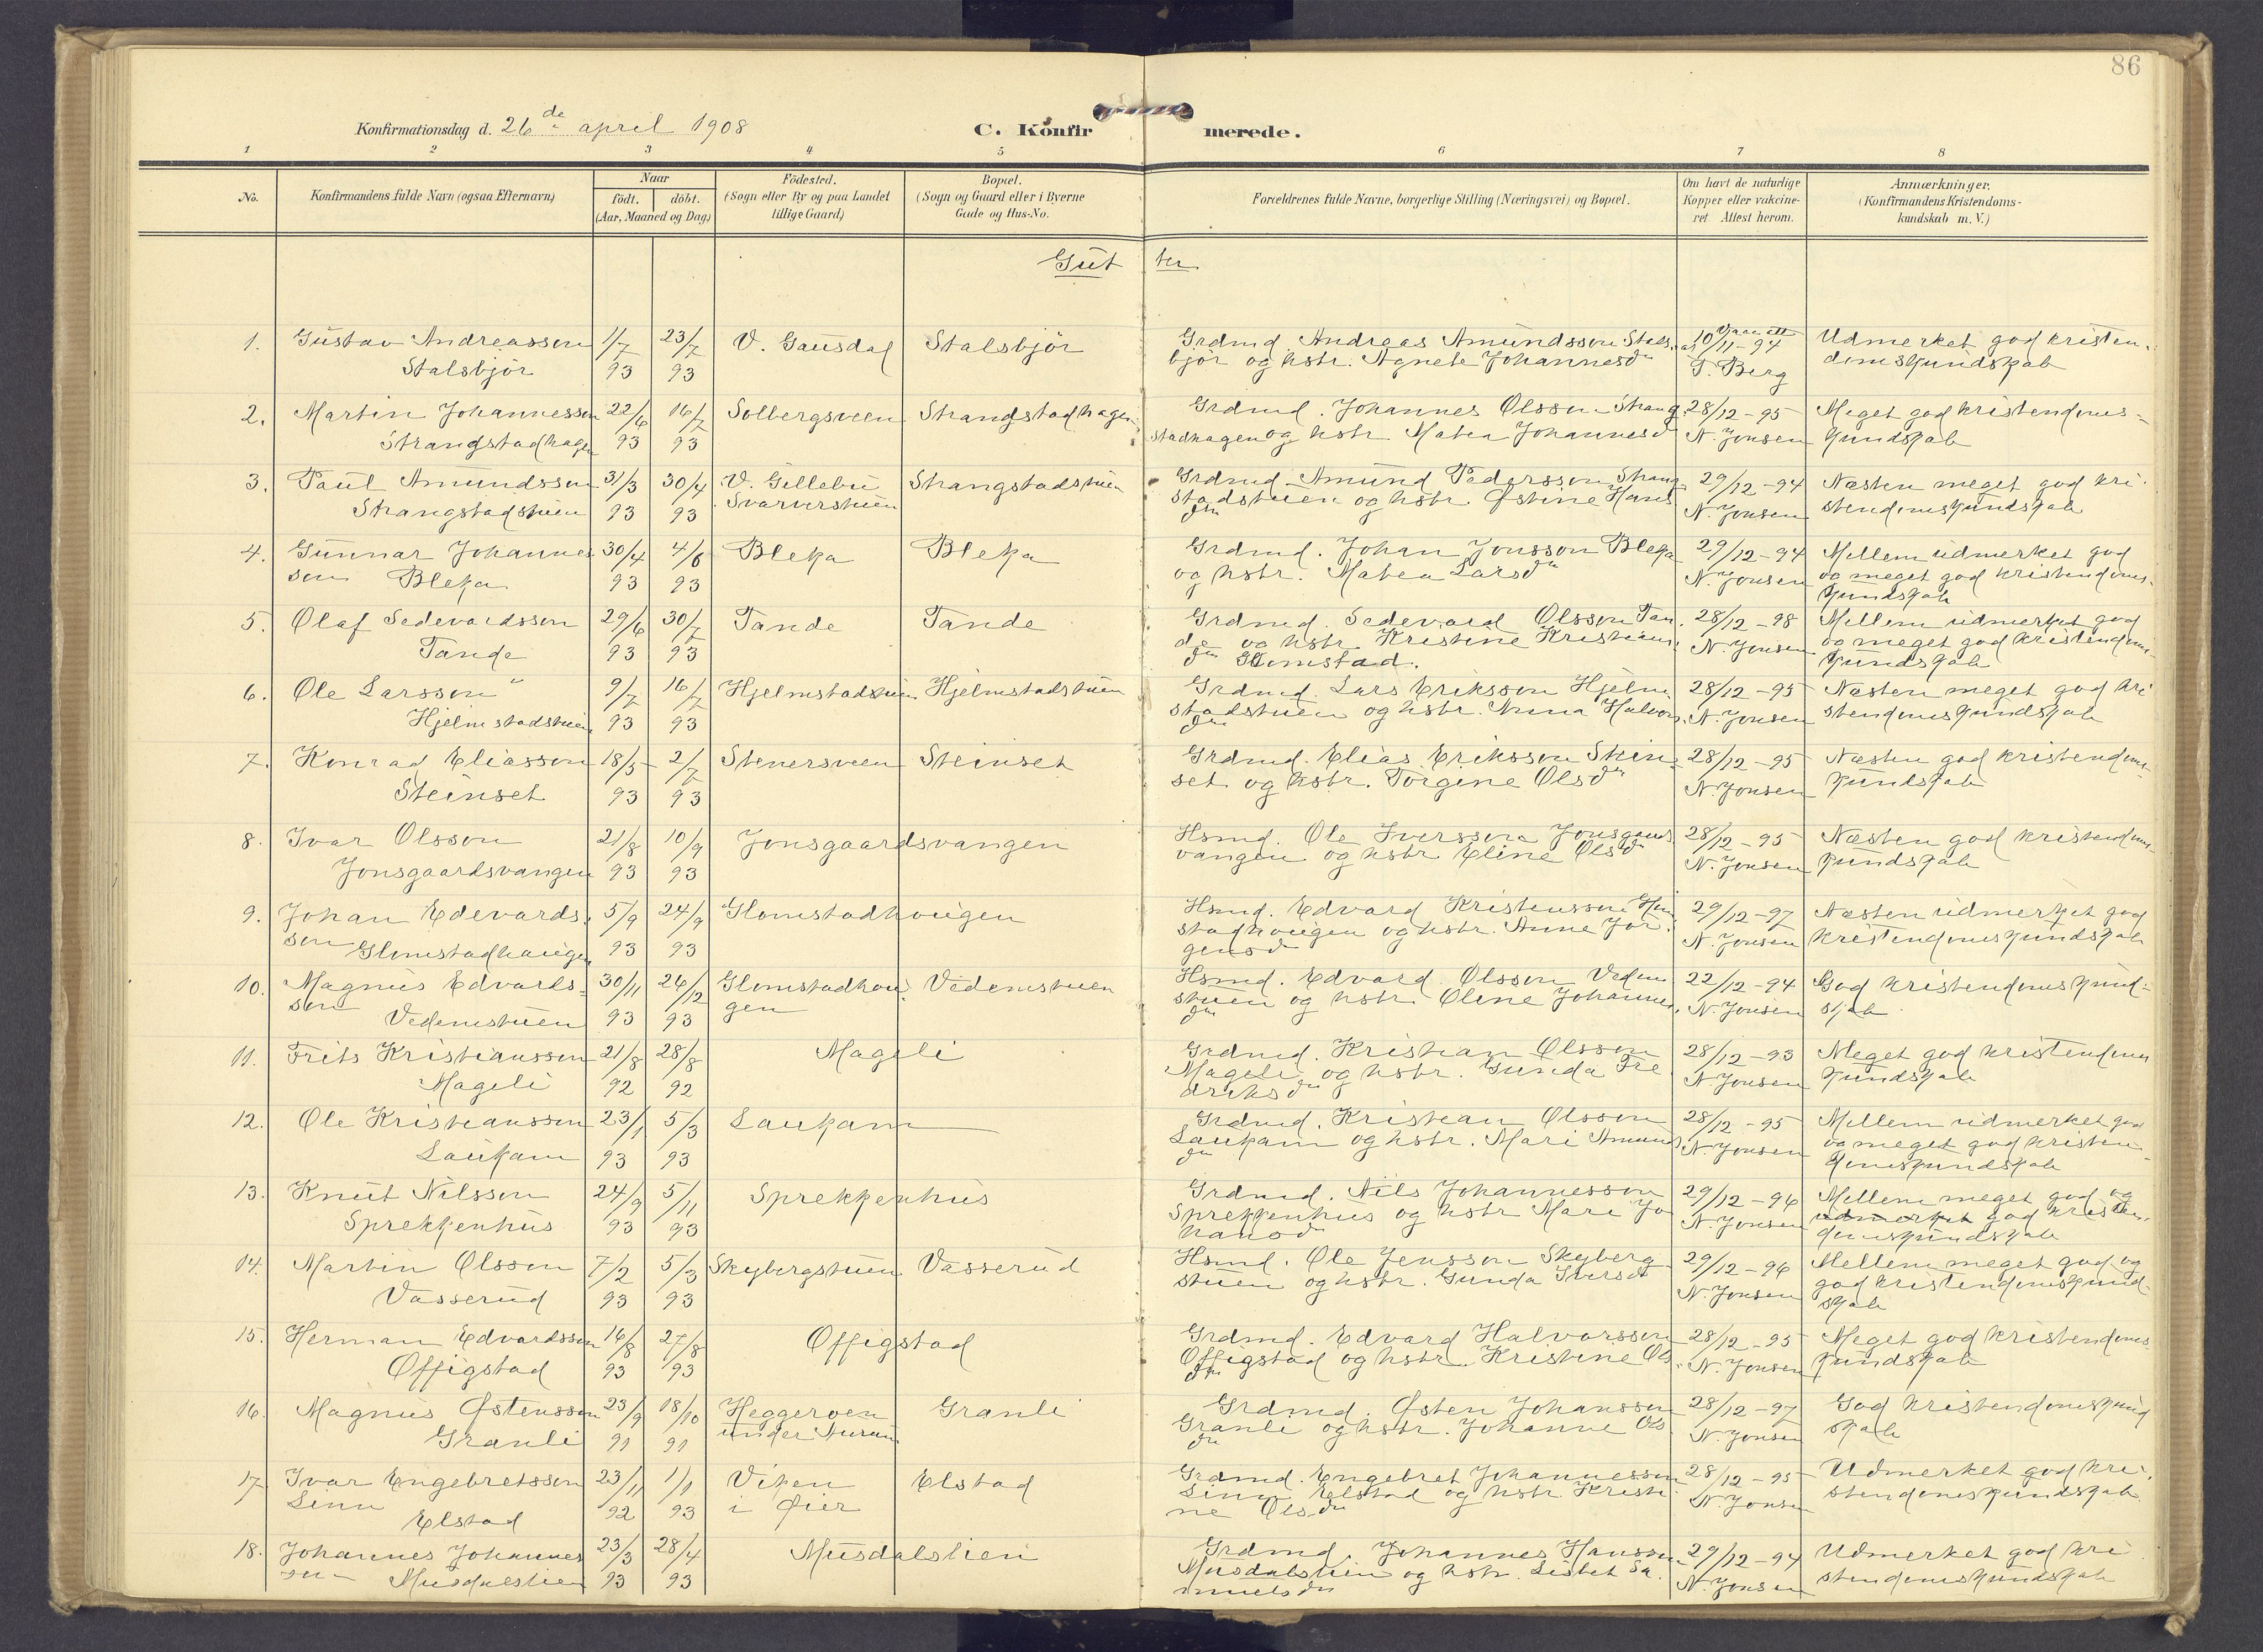 86
Konfirmationsdag d. 26de april 1908
C. Konfirmerede.
1 2 3 4 5 6 7 8
No. Konfirmandens fulde Navn (ogsaa Efternavn) Naar födt. döbt. (Aar, Maaned og Dag) Födested. (Sogn eller By og paa Landet tillige Gaard) Bopæl. (Sogn og Gaard eller i Byerne Gade og Hus-No. Forældrenes fulde Navne, borgerlige Stilling (Næringsvei) og Bopæl. Om havt de naturlige Kopper eller vakcineret Attest herom. Anmærkninger. (Konfirmandens Kristendomskundskab m.V.)
Gutter
1. Gustav Andreassen 1/7 23/7 V. Gausdal Stalsbjör Grdmd Andreas Amundsson Stals- 10/11-94 Udmerket god kristen-
Stalsbjör 93 93 björ og hstr. Agnete Johannesdr T. Berg domskundskab
2. Martin Johannesson 22/6 16/7 Solbergsveen Strangstadhagen Grdmd. Johannes Olsson Strang- 28/12-95 Meget god kristendoms-
Strangstadhagen 93 93 stadhagen og hstr Matea Johannesd N. Jonsen kundskab
3. Paul Amundsson 31/3 30/4 V. Gillebu Strangstadstuen Grdmd Amund Pedersson Strang- 29/12-94 Næsten meget god kri-
Strangstadstuen 93 93 Svarverstuen stadstuen og hstr. Østine Hans N. Jonsen stendomskundskab
dtr
4. Gunnar Johannes 30/4 4/6 Bleka Bleka Grdmd. Johan Jonsson Bleka 29/12-94 Mellem udmerket god
son Bleka 93 93 og hstr. Matea Larsdr N. Jonsen og meget god kristendoms-
kundskab
5. Olaf Sedevardsson 29/6 30/7 Tande Tande Grdmd. Sedevard Olsson Tan- 28/12-98 Mellem udmerket god
Tande 93 93 de og hstr. Kristine Kristians N. Jonsen og meget god kristendoms-
dtr Glomstad. kundskab
6. Ole Larsson 9/7 16/7 Hjelmstadstuen Hjelmstadstuen Grdmd. Lars Eriksson Hjelm 28/12-95 Næsten meget god kri
Hjelmstadstuen 93 93 stadstuen og hstr. Anna Halvors N. Jonsen stendomskundskab
dtr
7. Konrad Eliasson 18/5 2/7 Stenersveen Steinset Grdmd. Elias Eriksson Stein- 28/12-95 Næsten god kristendoms-
Steinset 93 93 set og hstr. Torgine Olsdr N. Jonsen kundskab
8. Ivar Olsson 21/8 10/9 Jonsgaardsvangen Hsmd. Ole Iversson Jonsgaards 28/12-95 Næsten god kristendoms-
Jonsgaardsvangen 93 93 vangen og hstr Eline Olsdr N. Jonsen kundskab
9. Johan Edevards- 5/9 24/9 Glomstadhougen Hsmd. Edvard Kristensson 29/12-97 Næsten udmerket god
son Glomstadhaugen 93 93 stadhougen og hstr. Anne Jør- N. Jonsen kristendomskundskab
gensdr
10. Magnus Edvards- 30/11 26/12 Glomstadhou- Vedemstuen Hsmd. Edvard Olsson Vedem 22/12-94 God kristendomskund-
son Vedemstuen 93 93 gen stuen og hstr. Oline Johannes N. Jonsen skab
dtr
11. Frits Kristiansson 21/8 28/8 Mageli Grdmd. Kristian Olsson 28/12-93 Meget god kristendoms
Mageli 92 92 Mageli og hstr. Gunda Fre N. Jonsen kundskab
driksdtr
12. Ole Kristiansson 23/1 5/3 Laukam Grdmd. Kristian Olsson 28/12-95 Mellem udmerket god
Laukam 93 93 Laukam og hstr. Mari Amunds N. Jonsen og meget god kristen-
dtr domskundskab
13. Knut Nilsson 24/9 5/11 Sprekkenhus Grdmd. Nils Johannesson 29/12-96 Mellem meget god og
Sprekkenhus 93 93 Sprekkenhus og hstr Mari Jo N. Jonsen udmerket god kristen-
hansdr domskundskab
14. Martin Olsson 7/2 5/3 Skybergstuen Vasserud Hsmd. Ole Jensson Skyberg- 29/12-96 Mellem meget god og
Vasserud 93 93 stuen og hstr. Gunda Iversdr N. Jonsen god kristendomskund-
skab
15. Herman Edvardsson 16/8 27/8 Offigstad Grdmd. Edvard Halvorsson 28/12-95 Meget god kristendoms
Offigstad 93 93 Offigstad og hstr. Kristine Ols N. Jonsen kundskab
dtr
16. Magnus Østensson 23/9 18/10 Heggerøen Granli Grdmd. Østen Johansson 28/12-97 God kristendomskund
Granli 91 91 under Granli og hstr. Johanne Ols N. Jonsen skab
dtr
17. Ivar Engebretsson 23/11 1/1 Viken Elstad Grdmd. Engebret Johannesson 28/12-95 Udmerket god kri-
Linn 92 93 i Øier Linn Elstad og hstr Kristi- N. Jonsen stendomskundskab
Elstad ne Olsdtr
18. Johannes Johannes 23/3 28/4 Musdalslien Grdmd. Johannes Hansson 29/12-94 Udmerket god kri
son Musdalslien 93 93 Musdalslien og hstr. Lisbet Sa- N. Jonsen stendomskundskab
muelsdtr